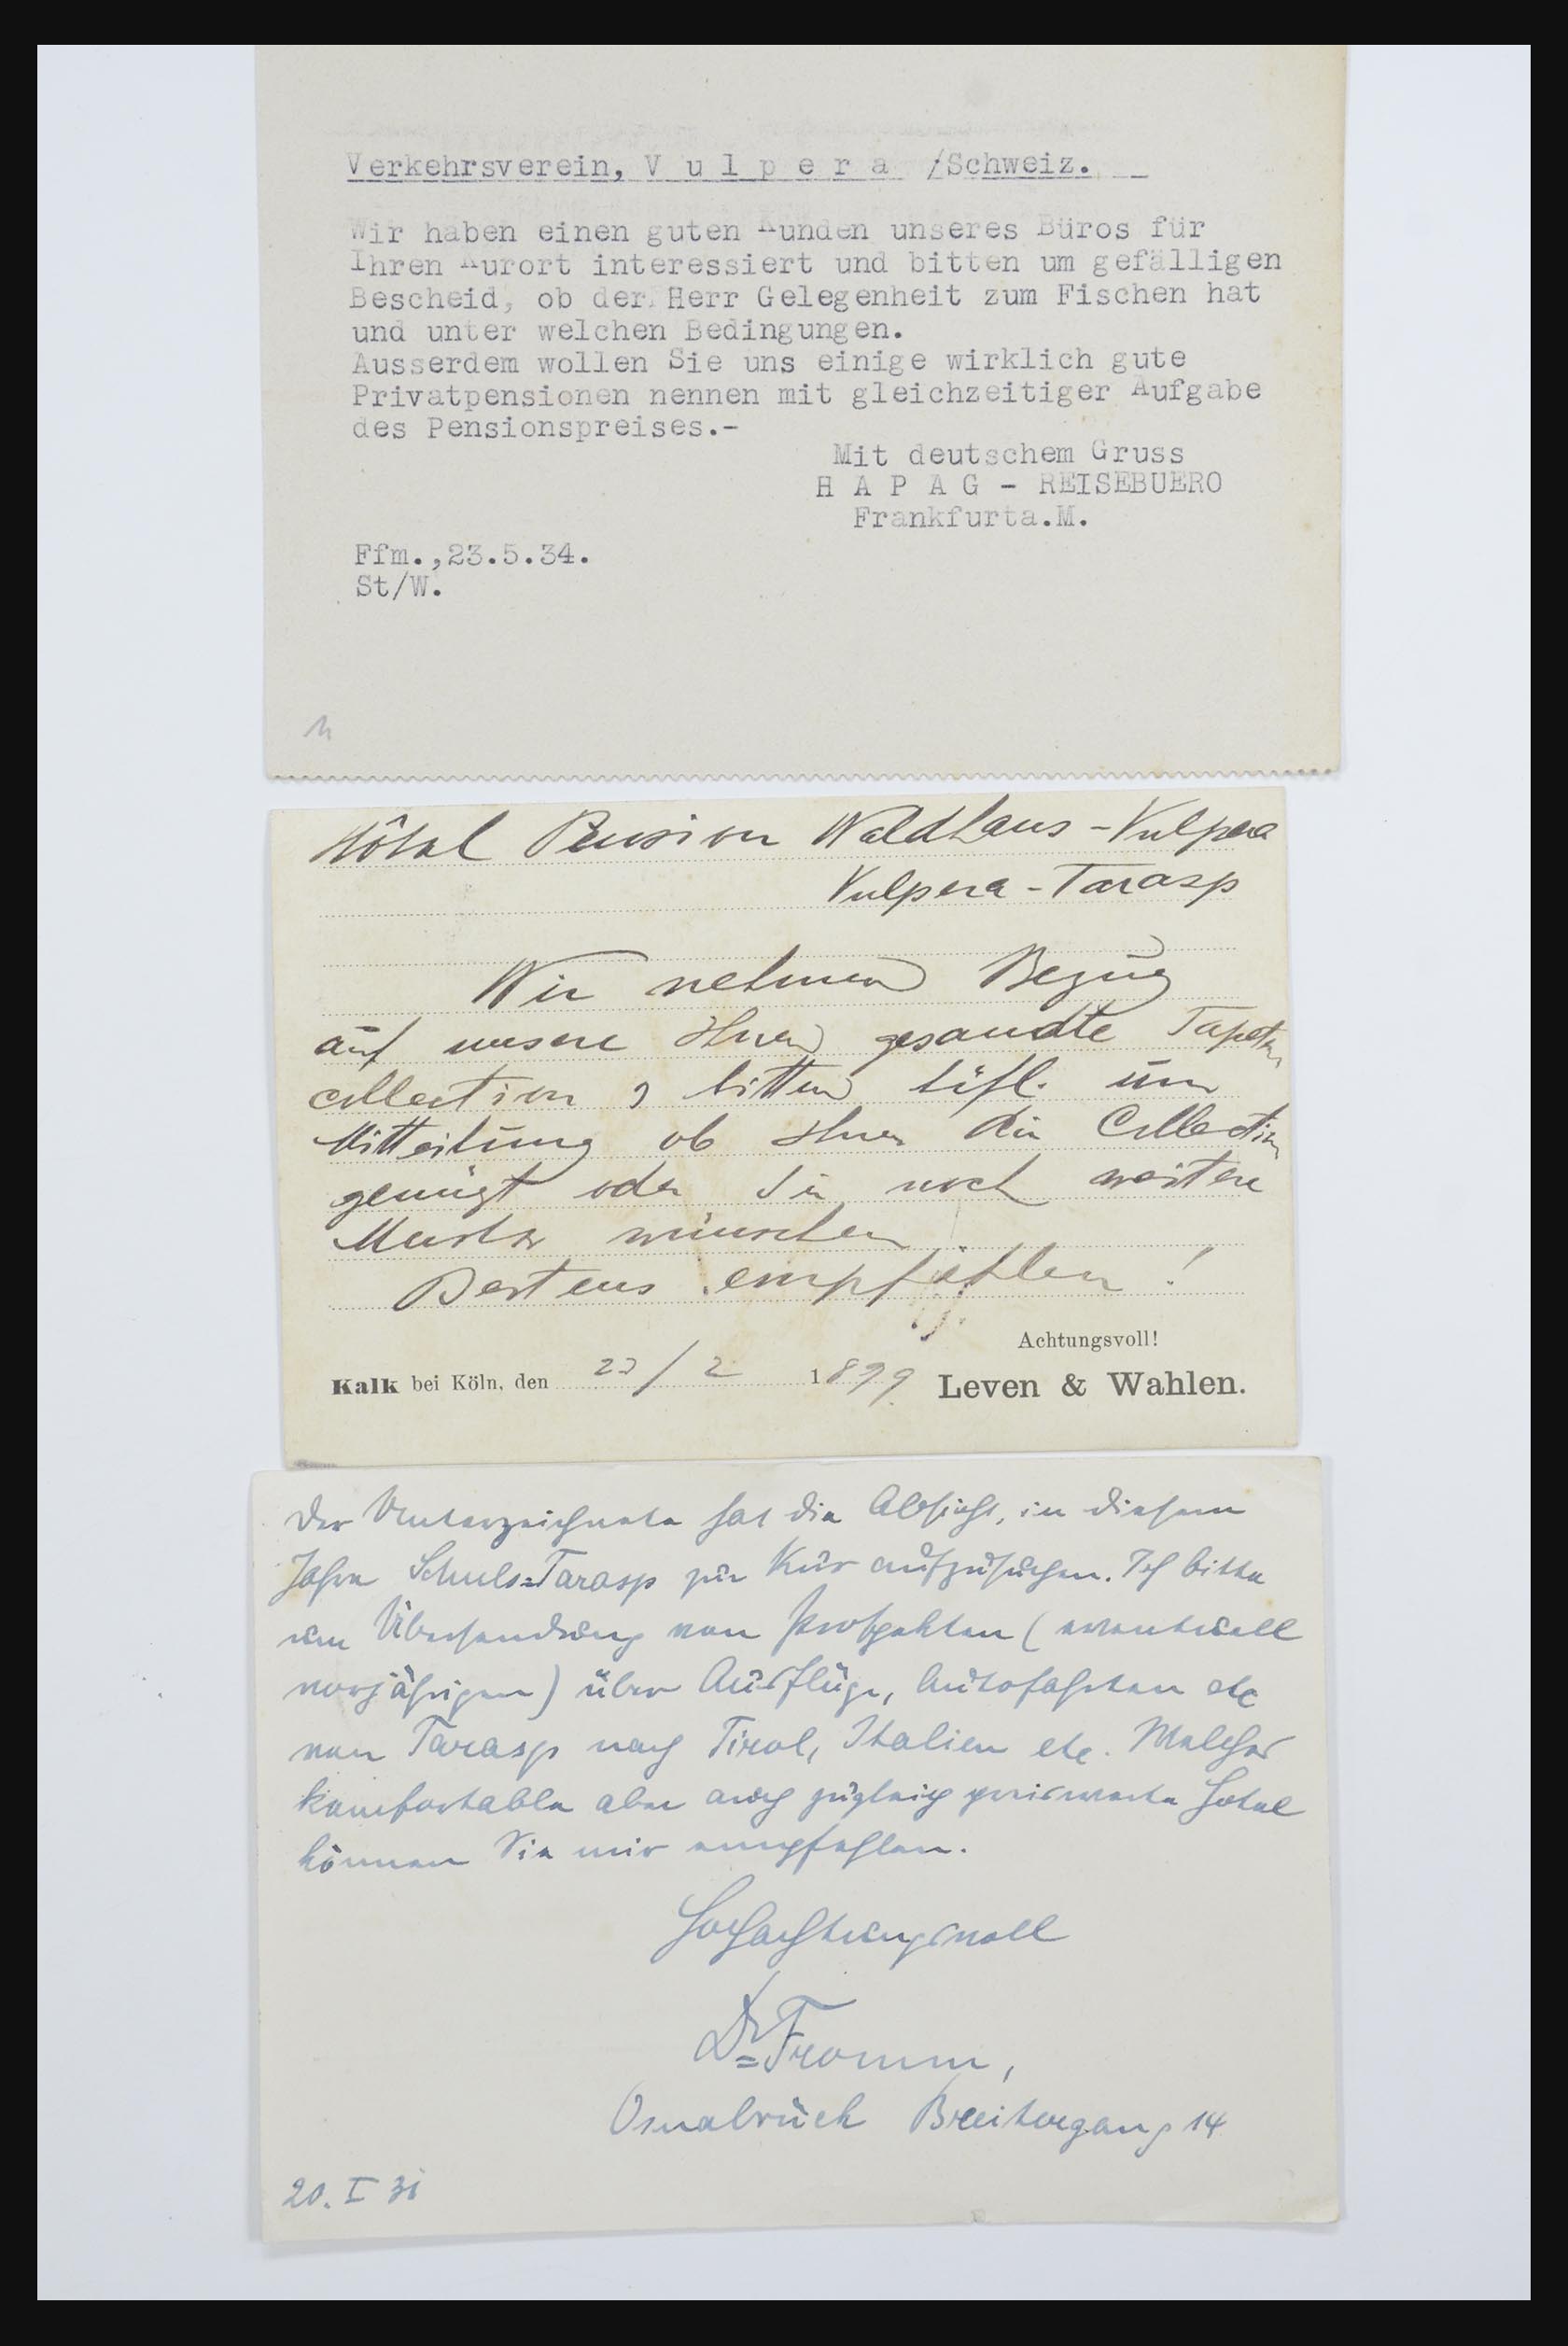 Verkehrsverein, V u l p e r a /Schweiz.
Wir haben einen guten Kunden unseres Büros für
Ihren Kurort interessiert und bitten um gefälligen
Bescheid, ob der Herr Gelegenheit zum Fischen hat
und unter welchen Bedingungen.
Ausserdem wollen Sie uns einige wirklich gute
Privatpensionen nennen mit gleichzeitiger Aufgabe
des Pensionspreises.-
Mit deutschem Gruss
H A P A G - REISEBUERO
Frankfurta.M.
Ffm.,23.5.34.
St/W.
Hôtel Pension Waldhaus-Vulpera
Vulpera-Tarasp
Wir nehmen Bezug
auf unsere Ihnen gesandte Tapeten
collection & bitten höfl. um
Mitteilung ob Ihnen die Collection
genügt oder Sie noch weitere
Muster wünschen.
Bestens empfohlen!
Achtungsvoll!
Kalk bei Köln, den 23/2 1899 Leven & Wahlen.
Der Unterzeichnete hat die Absicht, in diesem
Jahre Schuls=Tarasp zur Kur aufzusuchen. Ich bitte
um Übersendung von Prospekten (eventuell
vorjährigen) über Ausflüge, Autofahrten etc
von Tarasp nach Tirol, Italien etc. Welches
komfortable aber auch zugleich preiswerte Hotel
können Sie mir empfehlen.
Hochachtungsvoll
Dr Fromm,
Osnabrück Breitergang 14
20. I 31